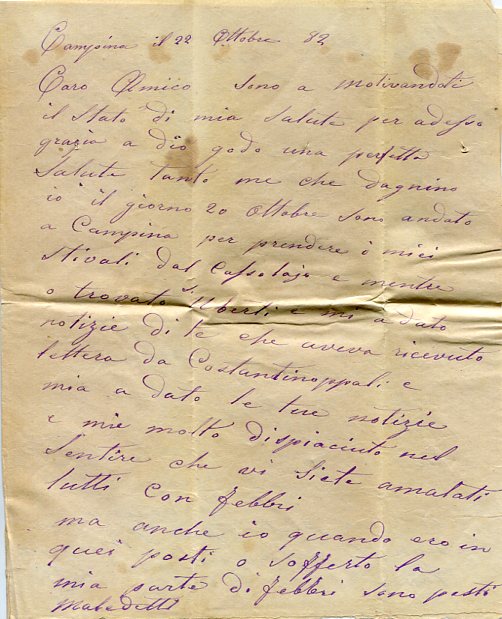 Campina il 22 Ottobre 82
Caro Amico sono a motivandoti
il Stato di mia Salute per adesso
grazia a dio godo una perfetta
Salute tanto me che dagnino
io il giorno 20 Ottobre sono andato
a Campina per prendere i miei
Stivali dal Cafsolajo e mentre
o trovato Uberti e mi a dato
notizie di te che aveva ricevuto
lettera da Costantinoppali e
mia a dato le tue notizie
e mie molto dispiaciuto nel
Sentire che vi siete amalati
tutti con febbri
ma anche io quando ero in
quei posti o sofferto la
mia parte di febbri sono posti
maledetti